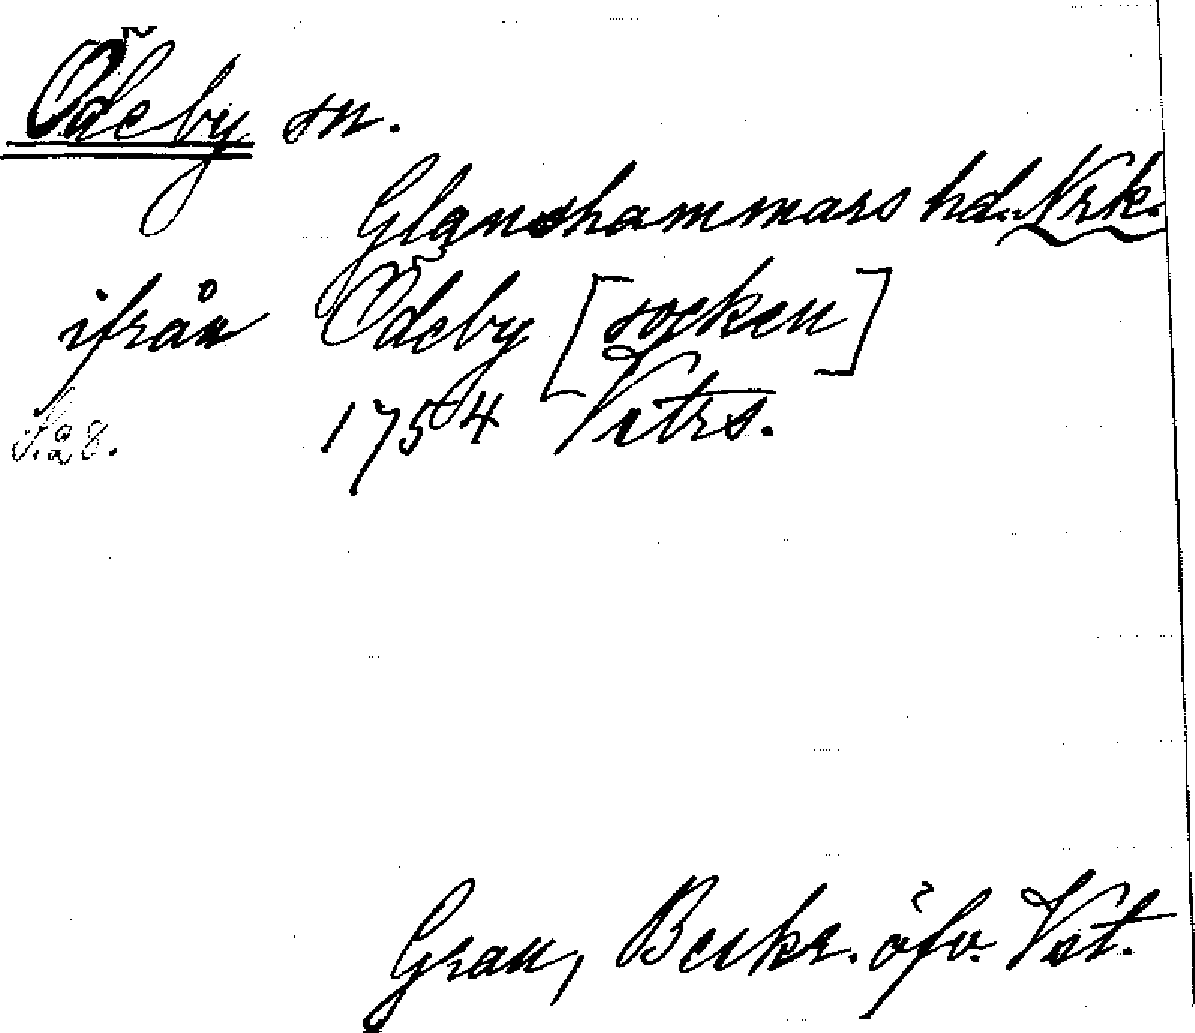 Ödeby sn.
Glanshammars hd. Nrk.
ifrån Ödeby [socken]
S. 28. 1754 Vitrs.
Grau, Beskr. öfv. Vst.